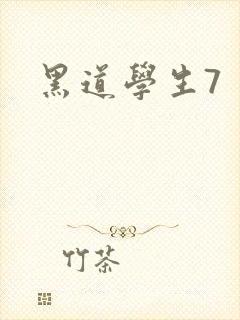 黑道學生7
竹茶